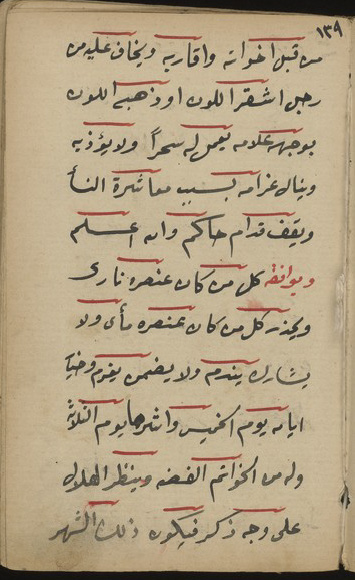 ١٣٩
من قبل اخوانه واقاربه ويخاف عليه من
رجل اشقر اللون او ذهبي اللون
بوجهه علامه يعمل له سحراً ولا يؤذيه
وينال غرامه بسبب معاشرة النسأ
ويقف قدام حاكم والله اعلم
ويوافقه كل من كان عنصره نارى
ويحذر كل من كان عنصره مأى ولا
يشارك يندم ولا يضمن يغرم وخير
ايامه يوم الخميس واشرها يوم الثلاث
وله من الخواتم الفضه وينظر الهلال
على وجه ذكر فيكون ذلك الشهر